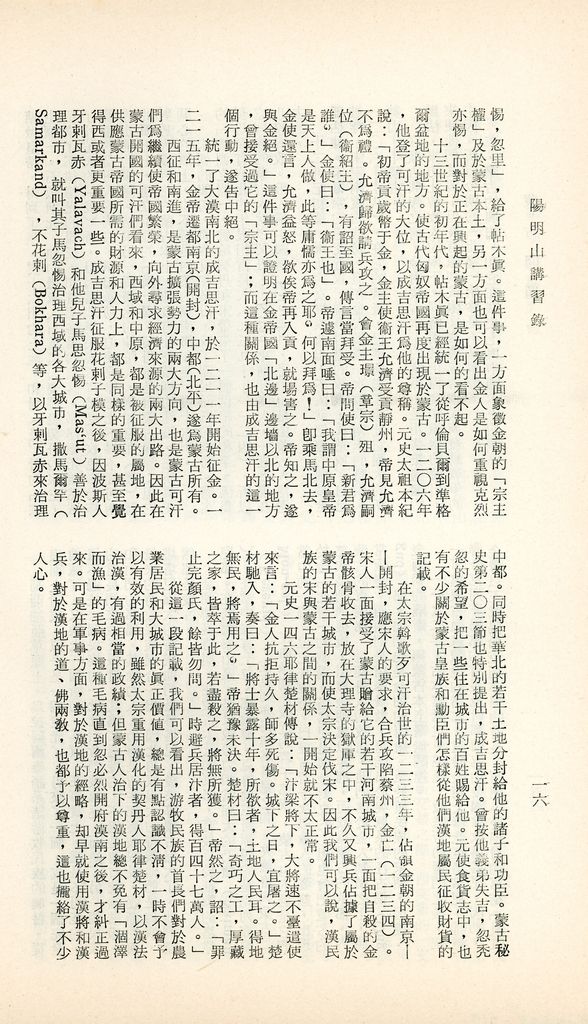 陽明山講習錄
一六
惕，忽里」，給了帖木眞。這件事，一方面象徵金朝的「宗主
權」及於蒙古本土，另一方面也可以看出金人是如何重視克烈
亦惕，而對於正在興起的蒙古，是如何的看不起。
十三世紀的初年代，帖木眞已經統一了從呼倫貝爾到準格
爾盆地的地方。使古代匈奴帝國再度出現於蒙古。一二〇六年
，他登了可汗的大位，以成吉思汗爲他的尊稱。元史太祖本紀
說：「初帝貢歲幣于金，金主使衞王允濟受貢靜州，帝見允濟
不爲禮。允濟歸欲請兵攻之。會金主璟（章宗）殂，允濟嗣
位（衞紹王），有詔至國，傳言當拜受。帝問使曰：「新君爲
誰。」金使曰：「衞王也」。帝遽南面唾曰：「我謂中原皇帝
是天上人做，此等庸懦亦爲之耶？何以拜爲！」卽乘馬北去，
金使還言，允濟益怒，欲俟帝再入貢，就塲害之。帝知之，遂
與金絕。」這件事可以證明在金帝國「北邊」邊墻以北的地方
，曾接受過它的「宗主」；而這種關係，也由成吉思汗的這一
個行動，遂告中絕。
統一了大漠南北的成吉思汗，於一二一一年開始征金。一
二一五年，金帝遷都南京（開封），中都（北平）遂爲蒙古所有。
西征和南進，是蒙古擴張勢力的兩大方向，也是蒙古可汗
們爲繼續使帝國繁榮，向外尋求經濟來源的兩大出路。因此在
蒙古開國的可汗們看來，西域和中原，都是被征服的屬地，在
供應蒙古帝國所需的財源和人力上，都是同樣的重要，甚至覺
得西或者更重要一些。成吉思汗征服花剌子模之後，因波斯人
牙剌瓦赤（Yalavach）和他兒子馬思忽惕（Mas'ut）善於治
理都市，就叫其子馬忽惕治理西域的各大城市，撒馬爾罕（
Samarkand），不花剌（Bokhara）等，以牙剌瓦赤來治理
中都。同時把華北的若干土地分封給他的諸子和功臣。蒙古秘
史第二〇三節也特別提出，成吉思汗。曾按他義弟失吉，忽禿
忽的希望，把一些住在城市的百姓賜給他。元史食貨志中，也
有不少關於蒙古皇族和勳臣們怎樣從他們漢地屬民征收財貨的
記載。
在太宗斡歌歹可汗治世的一二三三年，佔領金朝的南京—
—開封，應宋人的要求，合兵攻陷蔡州，金亡（一二三四）。
宋人一面接受了蒙古贈給它的若干河南城市，一面把自殺的金
帝骸骨收去，放在大理寺的獄庫之中，不久又興兵佔據了屬於
蒙古的若干城市，而使太宗決定伐宋。因此我們可以說，漢民
族的宋與蒙古之間的關係，一開始就不太正常。
元史一四六耶律楚材傳說：「汴梁將下，大將速不臺遣使
來言：「金人抗拒持久，師多死傷。城下之日，宜屠之。」楚
材馳入，奏曰：「將士暴露十年，所欲者，土地人民耳。得地
無民，將焉用之？」帝猶豫未決。楚材曰：「奇巧之工，厚藏
之家，皆萃于此，若盡殺之，將無所獲。」帝然之，詔：「罪
止完顏氏，餘皆勿問。」時避兵居汴者，得百四十七萬人。」
從這一段記載，我們可以看出，游牧民族的首長們對於農
業居民和大城市的眞正價値，總是有點認識不淸，一時不會予
以有效的利用，雖然太宗重用漢化的契丹人耶律楚材，以漢法
治漢，有過相當的政績；但蒙古人治下的漢地總不免有「涸澤
而漁」的毛病。這種毛病直到忽必烈開府漠南之後，才糾正過
來。可是在軍事方面，對於漢地的經略，却早就使用漢將和漢
兵，對於漢地的道、佛兩敎，也都予以尊重，這也攏絡了不少
人心。